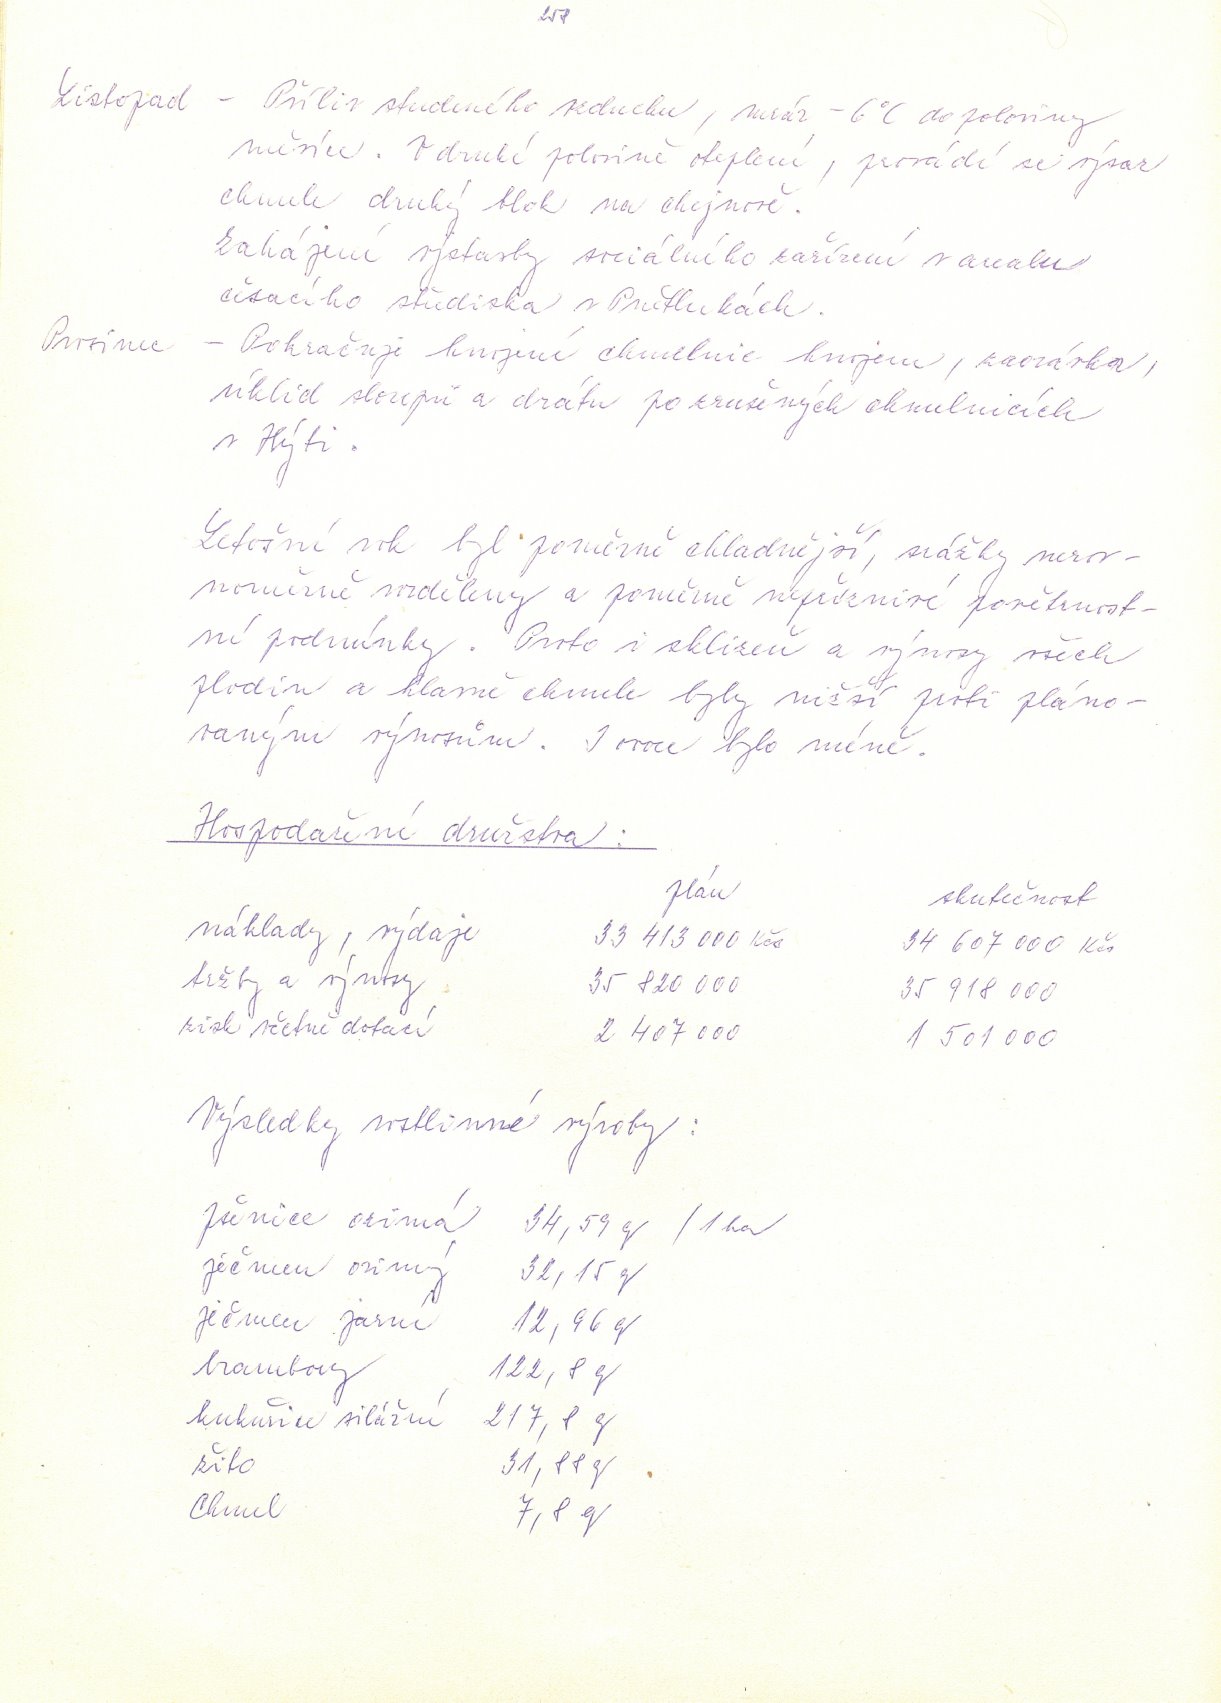 258
Listopad – Příliv studeného vzduchu, mráz -6°C do poloviny
měsíce. V druhé polovině oteplení, provádí se výsaz
chmele druhý blok na chejnově.
Zahájení výstavby sociálního zařízení v areálu
česacího střediska v Průtlukách.
Prosinec – Pokračuje hnojení chmelnic hnojem, zaorávka,
úklid sloupů a drátu po zrušených chmelnicích
v Hýti.
Letošní rok byl poměrně chladnější, srážky nerov-
noměrně rozděleny a poměrně nepříznivé povětrnost-
ní podmínky. Proto i sklizeň a výnosy všech
plodin a hlavně chmele byly nižší proti pláno-
vaným výnosům. I ovoce bylo méně.
Hospodaření družstva:
plán skutečnost
náklady, výdaje 33 413 000 Kčs 34 607 000 Kčs
tržby a výnosy 35 820 000 35 918 000
zisk včetně dotací 2 407 000 1 501 000
Výsledky rostlinné výroby:
pšenice ozimá 34,59 q /1 ha
ječmen ozimý 32,15 q
ječmen jarní 12,96 q
brambory 122,8 q
kukuřice silážní 217,8 q
žito 31,88 q
Chmel 7,8 q